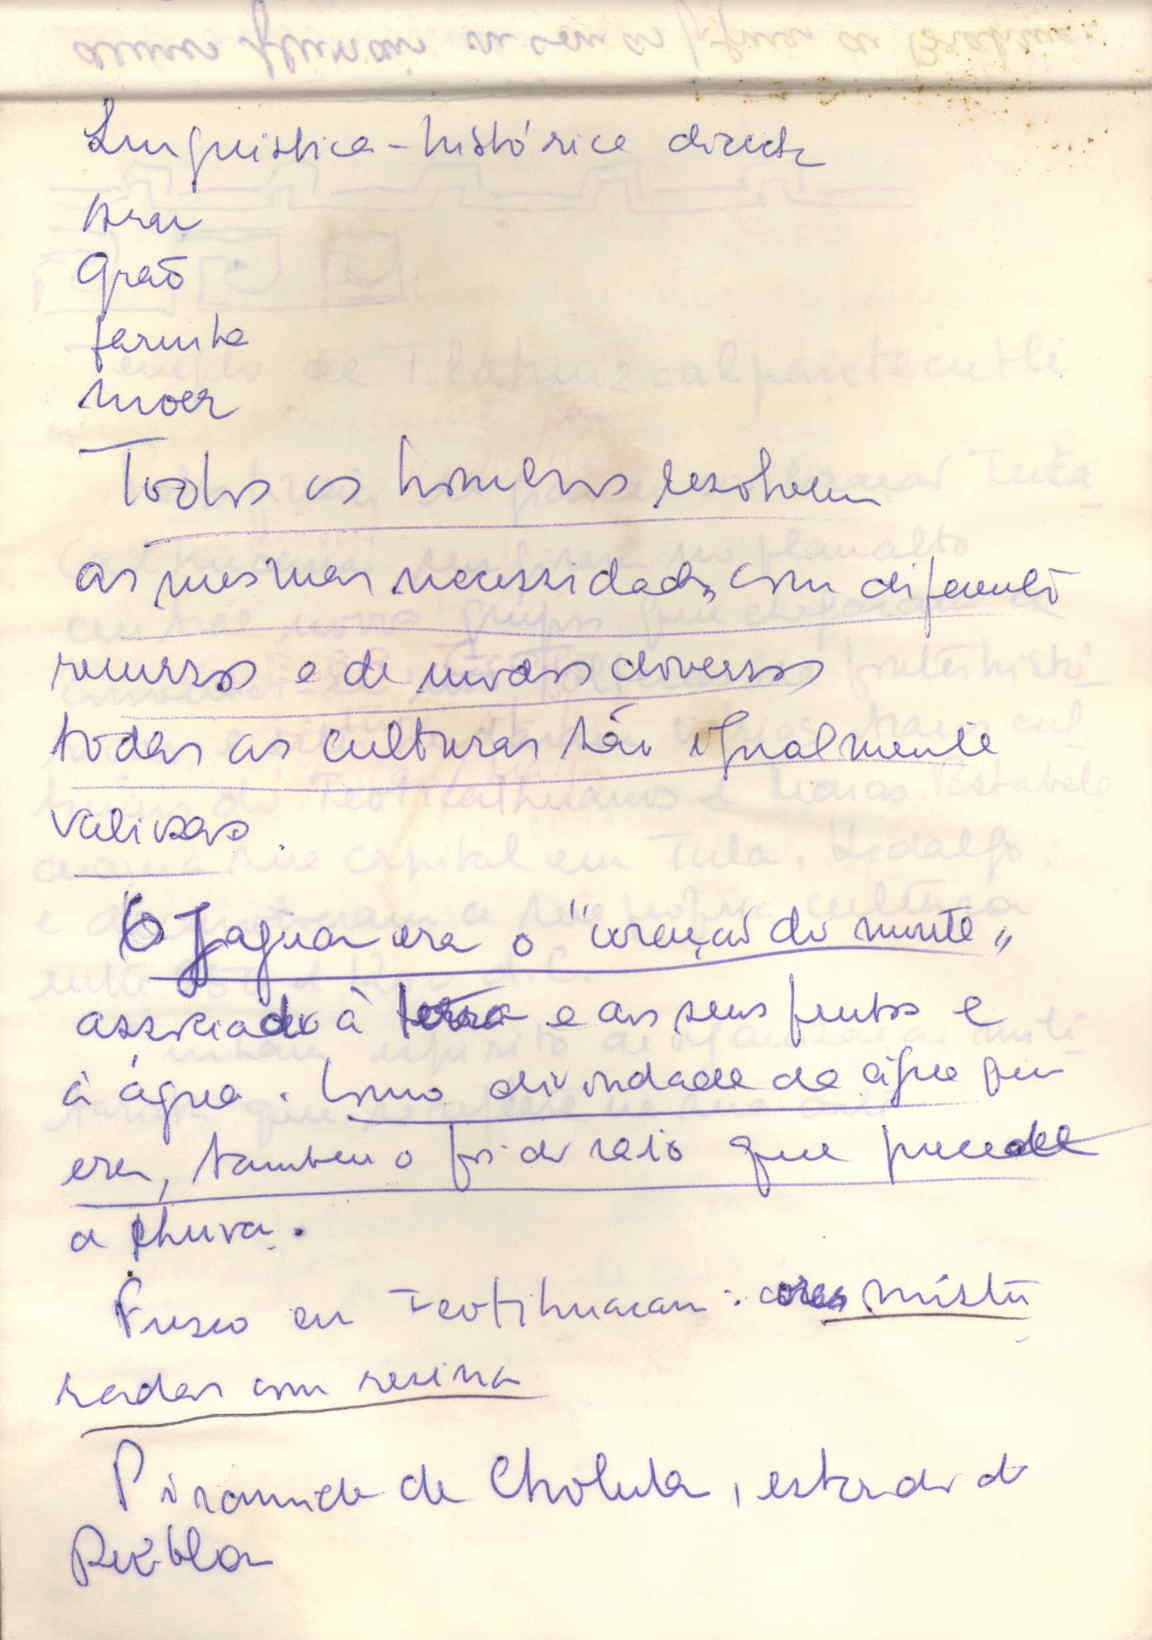 Linguistica-histórica directa
Arar
Grão
farinha
moer
Todos os homens resolvem
as mesmas necessidades com diferentes
recursos e de modos diversos
todas as culturas são igualmente
valiosas.
O Jaguar era o "coração do monte"
associado à terra e aos seus frutos e
à água. Como divindade da água que
era, tambem o foi do raio que precede
a chuva.
Fresco em Teotihuacan: cores mistu
radas com resina
Piramide de Cholula, estado de
Puebla